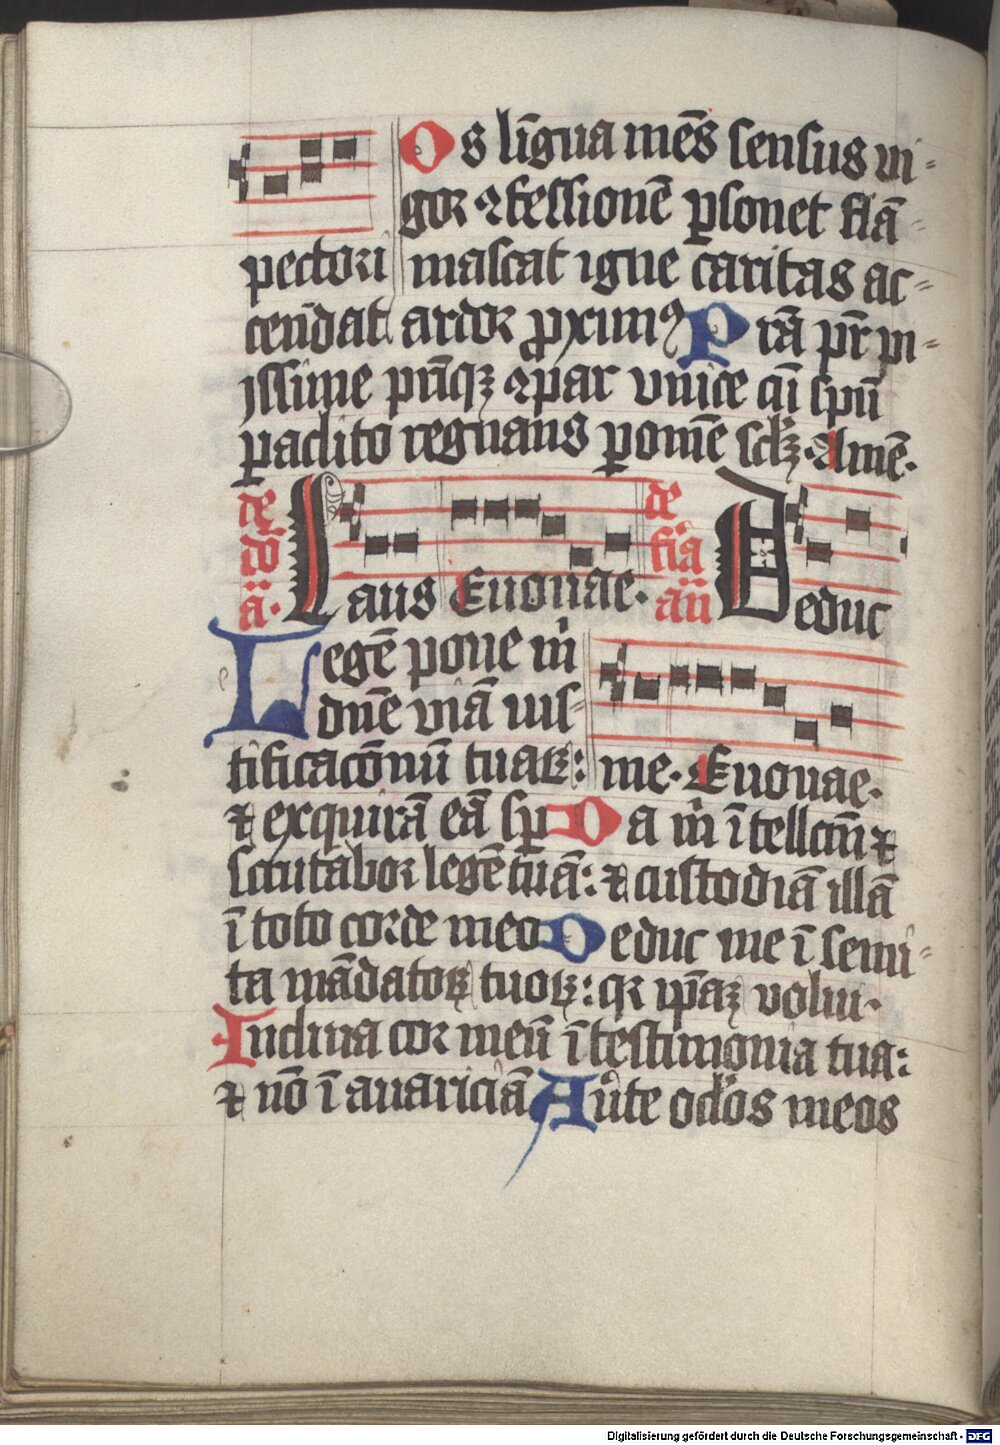 Os līgua mēs sensus vi-
gor ꝯfessionē ꝑsonet flā-
pectori mascat igne caritas ac-
cendat ardor ꝓximꝰ Prā pr̄ pi-
issime pr̄iqꝫ ꝯpar vnice cū spū
paclito regnans ꝑ omē sclꝫ. Amē.
de dō a. Laus Euouae. de fīa an̄ Deduc
Legē pone m̄
dn̄e viā ius-
tificacōnū tuaꝝ: me. Euouae.
⁊ exquirā eā sꝑ Da m̄ ītellcm̄ ⁊
scrutabor legē tuā: ⁊ custodiā illā
ī toto corde meo Deduc me ī semi-
ta mādatoꝝ tuoꝝ: qꝛ ip̄aꝫ volui.
Inclina cor meū ī testimonia tua:
⁊ nō ī auariciā Au̇te oclos meos
Digitalisierung gefördert durch die Deutsche Forschungsgemeinschaft - DFG